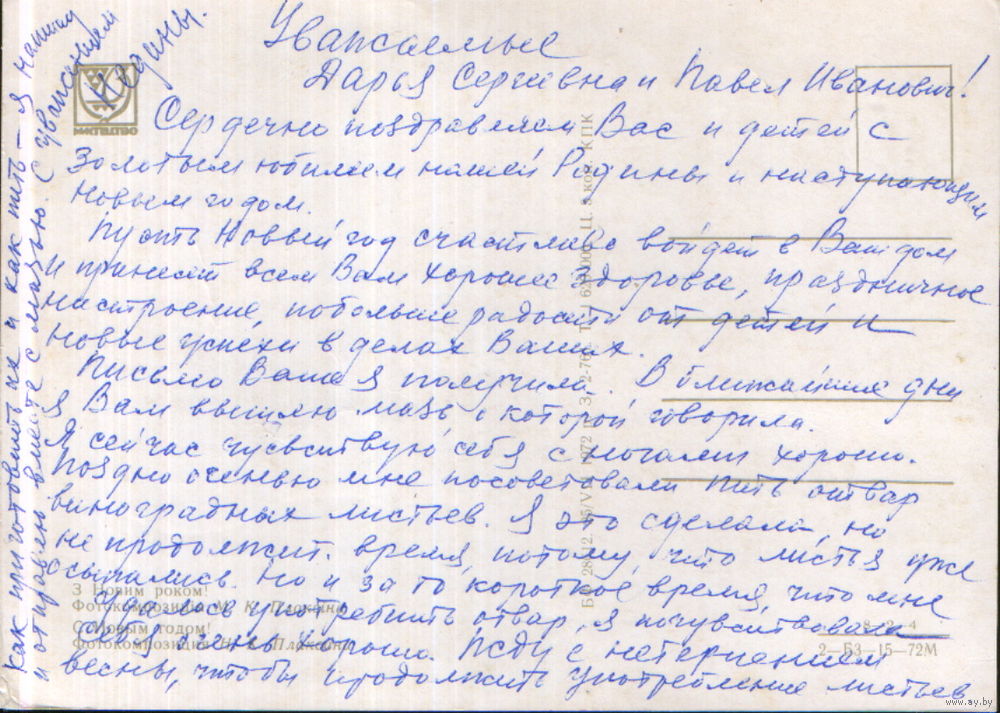 Уважаемые
Дарья Сергевна и Павел Иванович!
Сердечно поздравляем Вас и детей с
Золотым юбилеем нашей Родины и наступающим
Новым годом.
Пусть Новый год счастливо войдет в Ваш дом
и принесет всем Вам хорошее здоровье, праздничное
настроение, побольше радости от детей и
новые успехи в делах Ваших.
Письмо Ваше я получила. В ближайшие дни
я Вам вышлю мазь о которой говорила.
Я сейчас чувствую себя с ногами хорошо.
Поздно осенью мне посоветовали пить отвар
виноградных листьев. Я это сделала, но
не продолжит. время, потому, что листья уже
осыпались. Но и за то короткое время, что мне
удалось употребить отвар, я почувствовала
себя очень хорошо. Жду с нетерпением
весны, чтобы продолжить употребление листьев
Как приготовить их и как пить – я напишу
и отправлю вместе с мазью. С уважением
МИСТЕЦТВО
З Новим роком!
Фотокомпозиція М. К. Плаксіна
С Новым годом!
Фотокомпозиция Н. К. Плаксина
8—2—4
2—БЗ—15—72М
www.ay.by